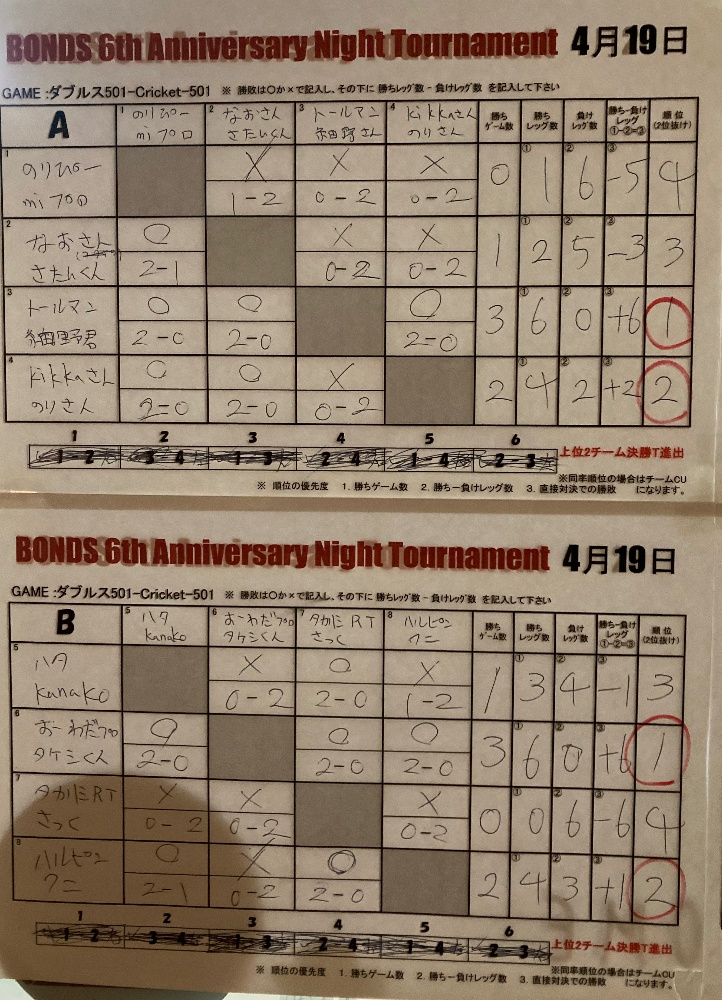 BONDS 6th Anniversary Night Tournament 4月19日
GAME :ダブルス501-Cricket-501 ※ 勝敗は〇か×で記入し、その下に 勝ちレッグ数 - 負けレッグ数 を記入して下さい
A 1 のりぴー 2 なおさん 3 トールマン 4 kikkaさん 勝ちゲーム数 ① 勝ちレッグ数 ② 負けレッグ数 ③ 勝ち-負けレッグ ①-②=③ 順位 (2位抜け)
miプロ さたけくん 細野さん のりさん
1 のりぴー × × × 0 ① 1 ② 6 ③ -5 4
miプロ 1-2 0-2 0-2
2 なおさん 〇 × × 1 ① 2 ② 5 ③ -3 3
さたけくん 2-1 0-2 0-2
3 トールマン 〇 〇 〇 3 ① 6 ② 0 ③ +6 1
細野君 2-0 2-0 2-0
4 kikkaさん 〇 〇 × 2 ① 4 ② 2 ③ +2 2
のりさん 2-0 2-0 0-2
1 2 3 4 5 6
1 2 3 4 1 3 2 4 1 4 2 3 上位2チーム決勝T進出
※同率順位の場合はチームCU
※ 順位の優先度 1. 勝ちゲーム数 2. 勝ち-負けレッグ数 3. 直接対決での勝敗 になります。
BONDS 6th Anniversary Night Tournament 4月19日
GAME :ダブルス501-Cricket-501 ※ 勝敗は〇か×で記入し、その下に 勝ちレッグ数 - 負けレッグ数 を記入して下さい
B 5 ハタ 6 おーわだプロ 7 タカミRT 8 ハルピン 勝ちゲーム数 ① 勝ちレッグ数 ② 負けレッグ数 ③ 勝ち-負けレッグ ①-②=③ 順位 (2位抜け)
kanako タケシくん さっく クニ
5 ハタ × 〇 × 1 ① 3 ② 4 ③ -1 3
kanako 0-2 2-0 1-2
6 おーわだプロ 〇 〇 〇 3 ① 6 ② 0 ③ +6 1
タケシくん 2-0 2-0 2-0
7 タカミRT × × × 0 ① 0 ② 6 ③ -6 4
さっく 0-2 0-2 0-2
8 ハルピン 〇 × 〇 2 ① 4 ② 3 ③ +1 2
クニ 2-1 0-2 2-0
1 2 3 4 5 6
1 2 3 4 1 3 2 4 1 4 2 3 上位2チーム決勝T進出
※同率順位の場合はチームCU
※ 順位の優先度 1. 勝ちゲーム数 2. 勝ち-負けレッグ数 3. 直接対決での勝敗 になります。